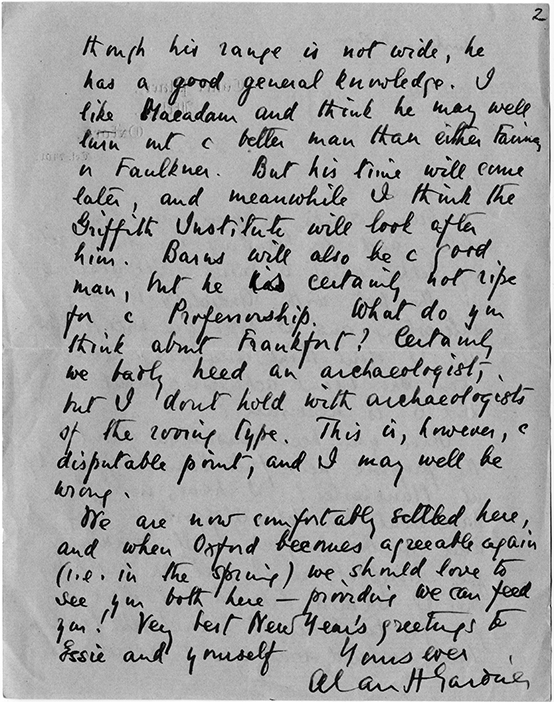 2
though his range is not wide, he
has a good general knowledge. I
like Macadam and think he may well
turn out a better man than either Fairman
or Faulkner. But his time will come
later, and meanwhile I think the
Griffith Institute will look after
him. Barns will also be a good
man, but he is certainly not ripe
for a Professorship. What do you
think about Frankfort? Certainly
we badly need an archaeologist,
but I don't hold with archaeologists
of the roving type. This is, however, a
disputable point, and I may well be
wrong.
We are now comfortably settled here,
and when Oxford becomes agreeable again
(i.e. in the spring) we should love to
see you both here – providing we can feed
you! Very best New Year's greetings to
Essie and yourself Yours ever
Alan H Gardiner